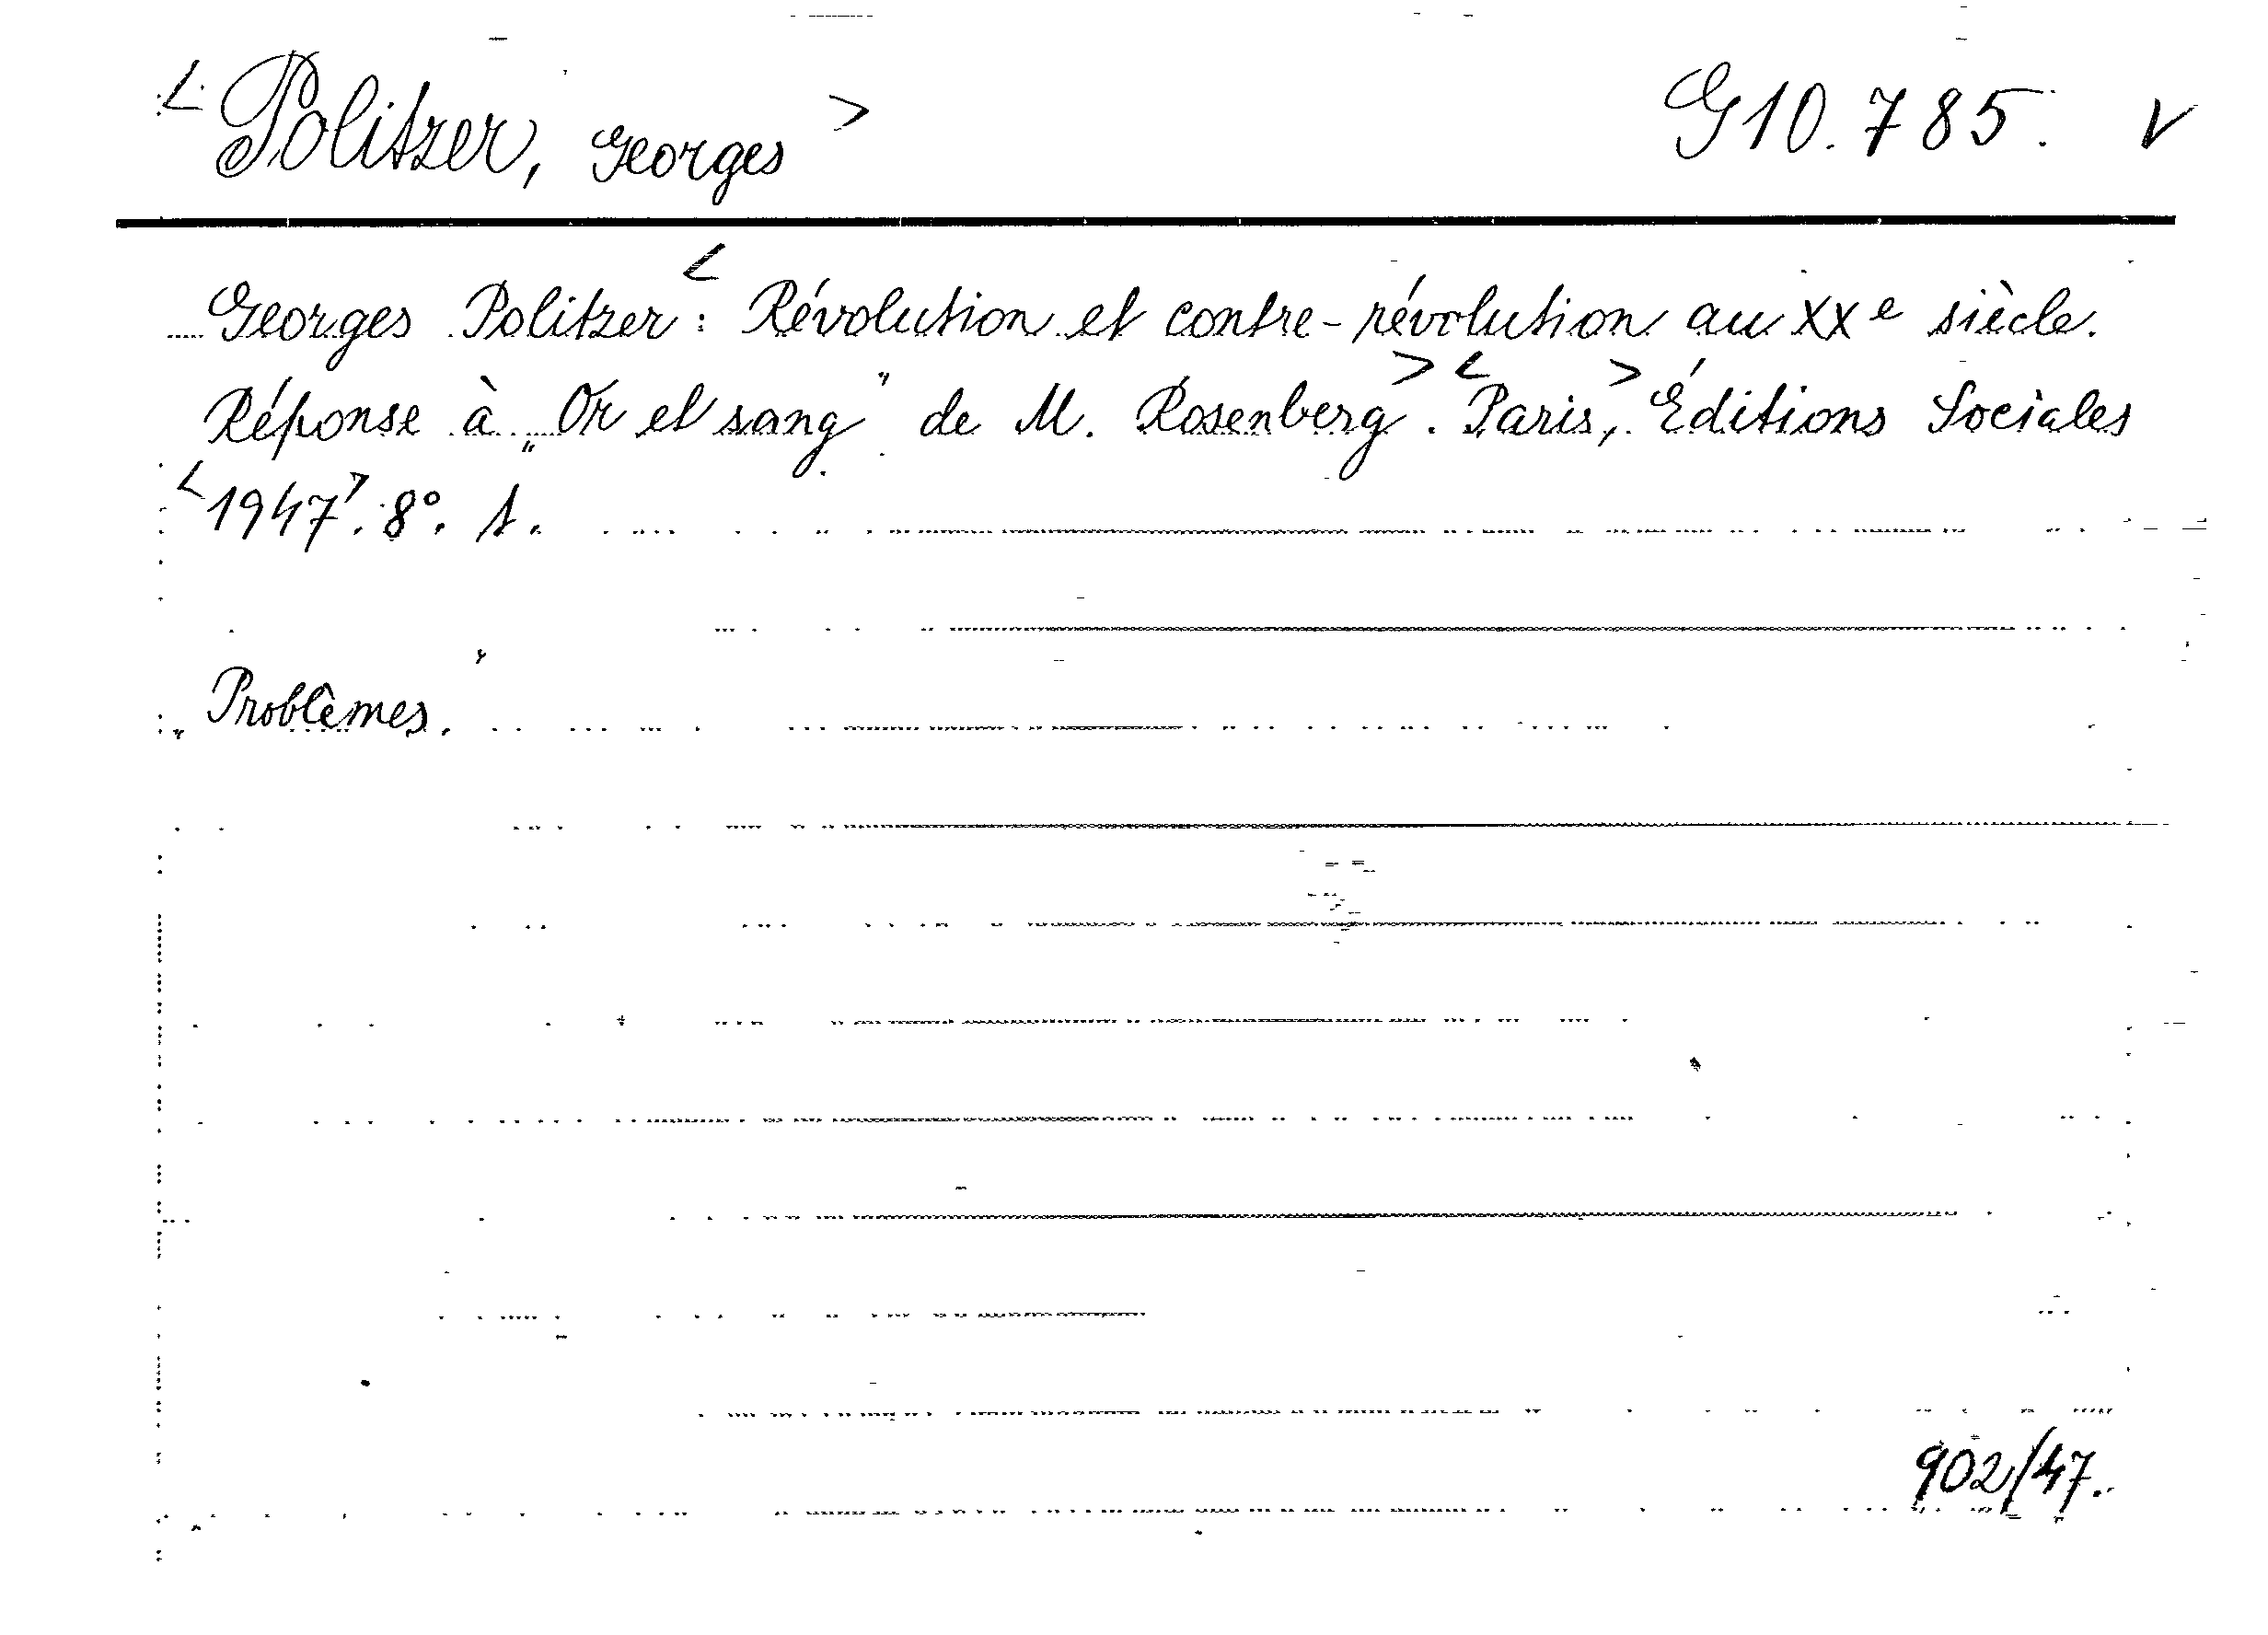 < Politzer, Georges > G10.785. v
Georges Politzer: < Révolution et contre-révolution au XXe siècle.
Réponse à „Or et sang" de M. Rosenberg > . < Paris, > Éditions Sociales
< 1947 >. 8°. 1.
„Problêmes."
902/47.